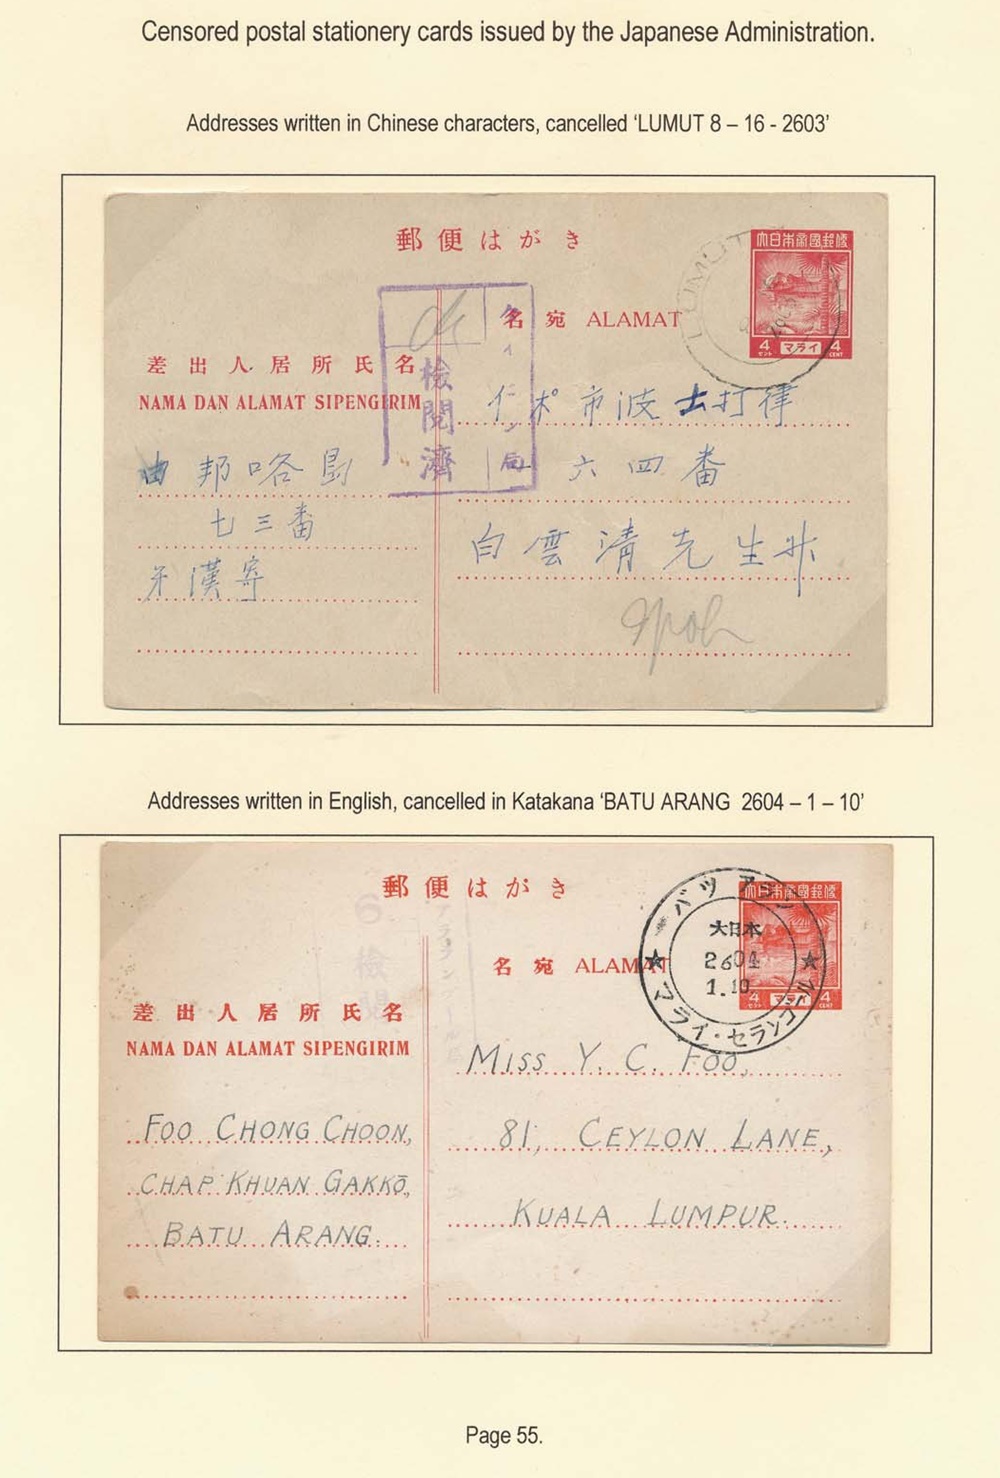 Censored postal stationery cards issued by the Japanese Administration.
Addresses written in Chinese characters, cancelled ‘LUMUT 8 – 16 - 2603’
郵便はがき
大日本帝國郵便
4 マライ 4
セント CENT
LUMUT
名宛 ALAMAT
差出人居所氏名
NAMA DAN ALAMAT SIPENGIRIM
檢閱濟
局
市波士打律
六四番
白雲清先生
邦咯島
七三番
漢寄
Ipoh
Addresses written in English, cancelled in Katakana ‘BATU ARANG 2604 – 1 – 10’
郵便はがき
大日本帝國郵便
4 マライ 4
セント CENT
大日本
2604
1.10
マライ・セランゴール
名宛 ALAMAT
6
檢閱
差出人居所氏名
NAMA DAN ALAMAT SIPENGIRIM
MISS Y. C. FOO,
81, CEYLON LANE,
KUALA LUMPUR.
FOO CHONG CHOON,
CHAP KHUAN GAKKŌ,
BATU ARANG.
Page 55.